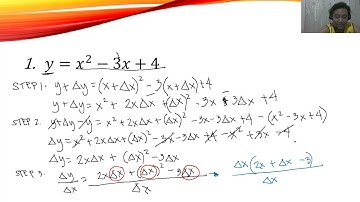 1. y = x² − 3x + 4
STEP 1. y + Δy = (x + Δx)² − 3(x + Δx) + 4
y + Δy = x² + 2xΔx + (Δx)² − 3x − 3Δx + 4
STEP 2. y + Δy − y = x² + 2xΔx + (Δx)² − 3x − 3Δx + 4 − (x² − 3x + 4)
Δy = x² + 2xΔx + (Δx)² − 3x − 3Δx + 4 − x² + 3x − 4
Δy = 2xΔx + (Δx)² − 3Δx
STEP 3. Δy/Δx = (2xΔx + (Δx)² − 3Δx)/Δx → Δx(2x + Δx − 3)/Δx